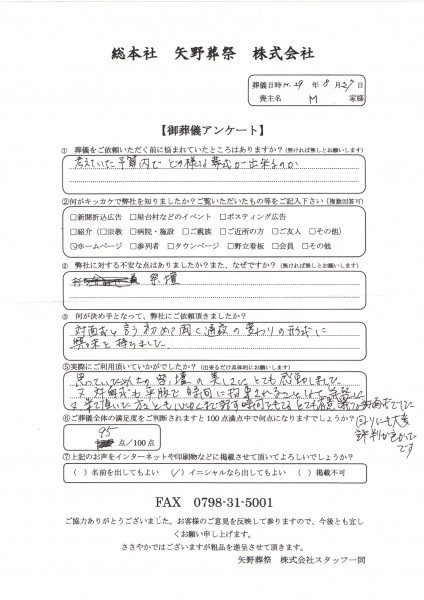 総本社 矢野葬祭 株式会社
葬儀日時 H.29 年 8 月 27 日
喪主名 M 家様
【御葬儀アンケート】
① 葬儀をご依頼いただく前に悩まれていたところはありますか?(無ければ無しとお願いします)
考えていた予算内で どの様な葬式が出来るのか
②何がキッカケで弊社を知りましたか?ご覧いただいたもの等をご記入下さい(複数回答可)
□新聞折込広告 □屋台村などのイベント □ポスティング広告
□紹介(□宗教 □病院・施設 □ご親族 □ご近所の方 □ご友人 □その他)
☑ホームページ □参列者 □タウンページ □野立看板 □会員 □その他
② 弊社に対する不安な点はありましたか?また、なぜですか?(無ければ無しとお願いします)
祭壇
③ 何が決め手となって、弊社にご依頼頂きましたか?
対面式と言う初めて聞く通夜の変わりの形式に
興味を持ちました
⑤実際にご利用頂いていかがでしたか?(出来るだけ具体的にお願いします)
思っていた以上の祭壇の美しさにとても感動しました
又、対面式も平服で時間に拘束されることなく
⑥ご葬儀全体の満足度をご判断されますと100点満点中で何点になりますでしょうか?
95 点/100点
周りにも大変
評判が良かった
です
⑦上記のお声をインターネットや印刷物などに掲載させて頂いてよろしいでしょうか?
( )名前を出してもよい (✓)イニシャルなら出してもよい ( )掲載不可
FAX 0798-31-5001
ご協力ありがとうございました。お客様のご意見を反映して参りますので、今後とも宜し
くお願い申し上げます。
ささやかではございますが粗品を進呈させて頂きます。
矢野葬祭 株式会社スタッフ一同